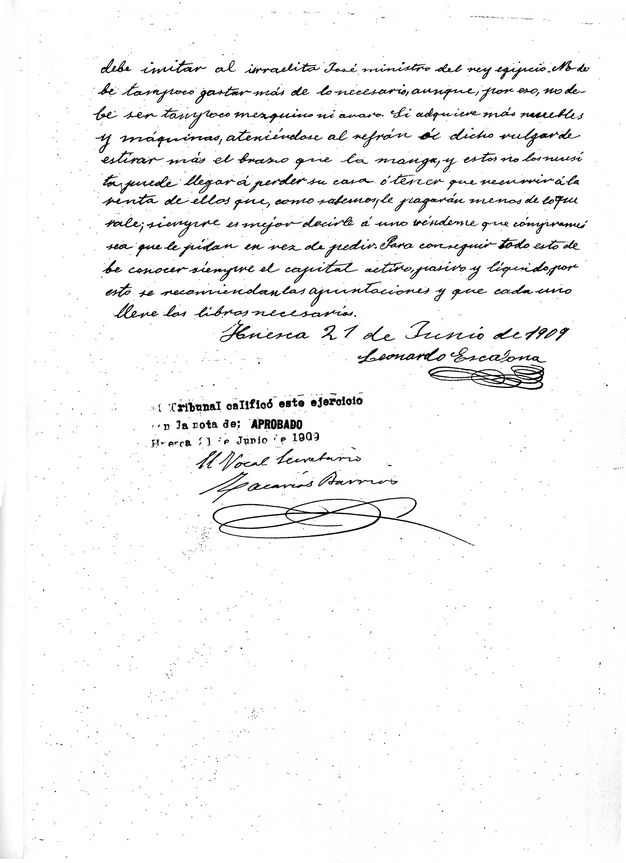 debe imitar al israelita José ministro del rey egipcio. No de
be tampoco gastar más de lo necesario, aunque, por eso, no de-
be ser tampoco mezquino ni avaro. Si adquiere más muebles
y máquinas, ateniéndose al refrán ó dicho vulgar de
estirar más el brazo que la manga, y estos no los necesi
ta, puede llegar á perder su casa ó tener que recurrir á la
venta de ellos que, como sabemos, le pagarán menos de lo que
vale; siempre es mejor decirle á uno véndeme que cómprame ó
sea que le pidan en vez de pedir. Para conseguir todo esto de
be conocer siempre el capital activo, pasivo y líquido, por
esto se recomiendan las apuntaciones y que cada uno
lleve los libros necesarios.
Huesca 21 de Junio de 1909
Leonardo Escalona
El Tribunal calificó este ejercicio
con la nota de; APROBADO
Huesca 21 de Junio de 1909
El Vocal Secretario
Zacarías Barrios